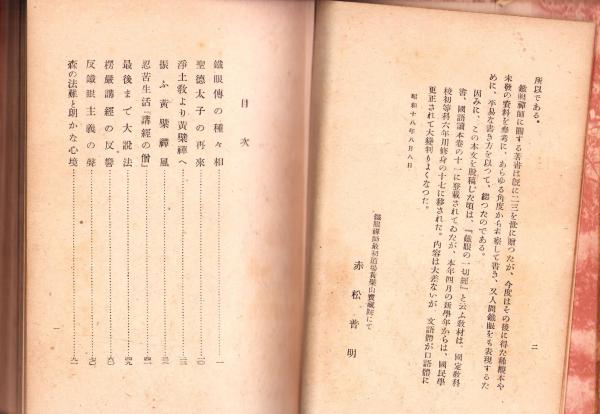 所以である。
鐵眼禪師に關する著書は既に二三を世に贈つたが、今度はその後に得た稀覯本や、
未發の資料を參考に、あらゆる角度から考察して書き、又人間鐵眼をも表現するた
めに、平易な書き方を以つて、綴つたのである。
因みに、この本文を脫稿した頃は、『鐵眼の一切經』と云ふ敎材は、國定敎科
書、國語讀本卷の十一に登載されてゐたが、本年四月の新學年からは、國民學
校初等科六年用修身の十七に移された。內容は大差ないが、文語體が口語體に
更正されて大變判りよくなつた。
昭和十八年八月八日
鐵眼禪師最初道場黃檗山寶藏院にて
赤松晉明
二
目次
鐵眼傳の種々相……一
聖德太子の再來
淨土敎より黃檗禪へ……二〇
振ふ黃檗禪風
忍苦生活『講經の僧』……四一
最後まで大說法……四九
楞嚴講經の反響……六〇
反鐵眼主義の聲……七〇
森の法難と朗かな心境……九一
一